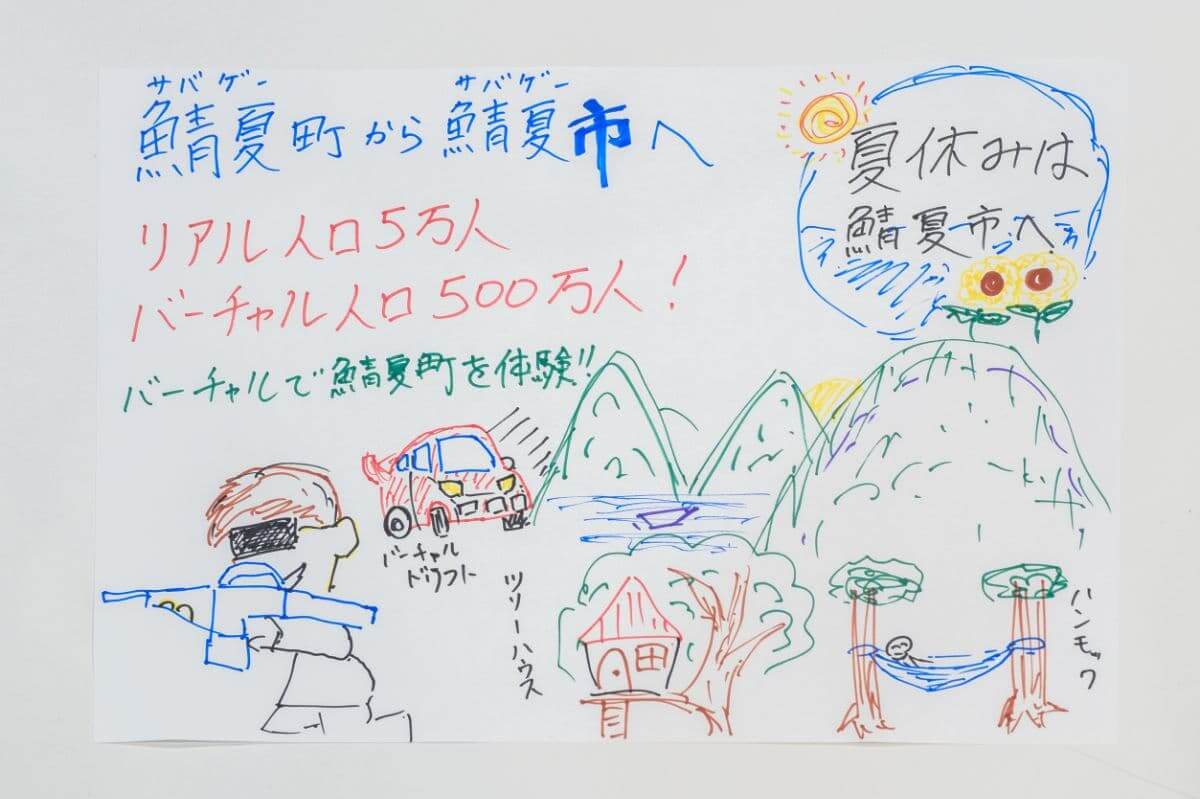 サバゲー サバゲー
鯖夏町から鯖夏市へ
リアル人口5万人
バーチャル人口500万人!
バーチャルで鯖夏町を体験!!
夏休みは
鯖夏市へ
バーチャル
ドリフト
ツリーハウス
ハンモック